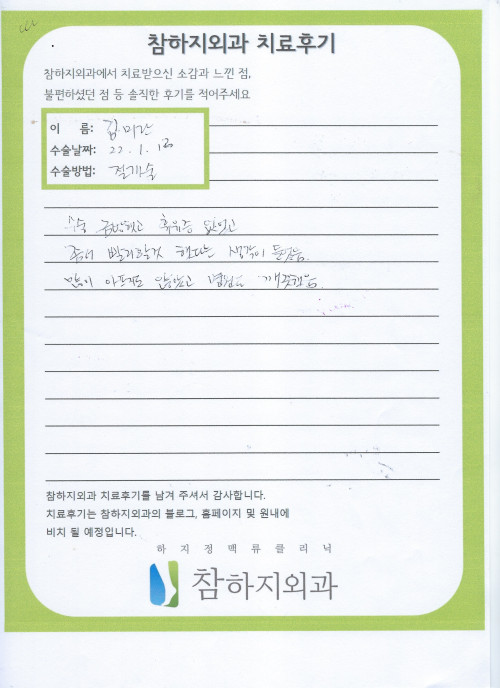 참하지외과 치료후기
참하지외과에서 치료받으신 소감과 느낀 점,
불편하셨던 점 등 솔직한 후기를 적어주세요
이 름: 김미란
수술날짜: 22. 1. 13
수술방법: 절개술
수술 금방하고 후유증 없었고
좀더 빨리할것 했다는 생각이 들었음.
많이 아프지도 않았고 병원도 깨끗했음.
참하지외과 치료후기를 남겨 주셔서 감사합니다.
치료후기는 참하지외과의 블로그, 홈페이지 및 원내에
비치 될 예정입니다.
하지정맥류클리닉
참하지외과